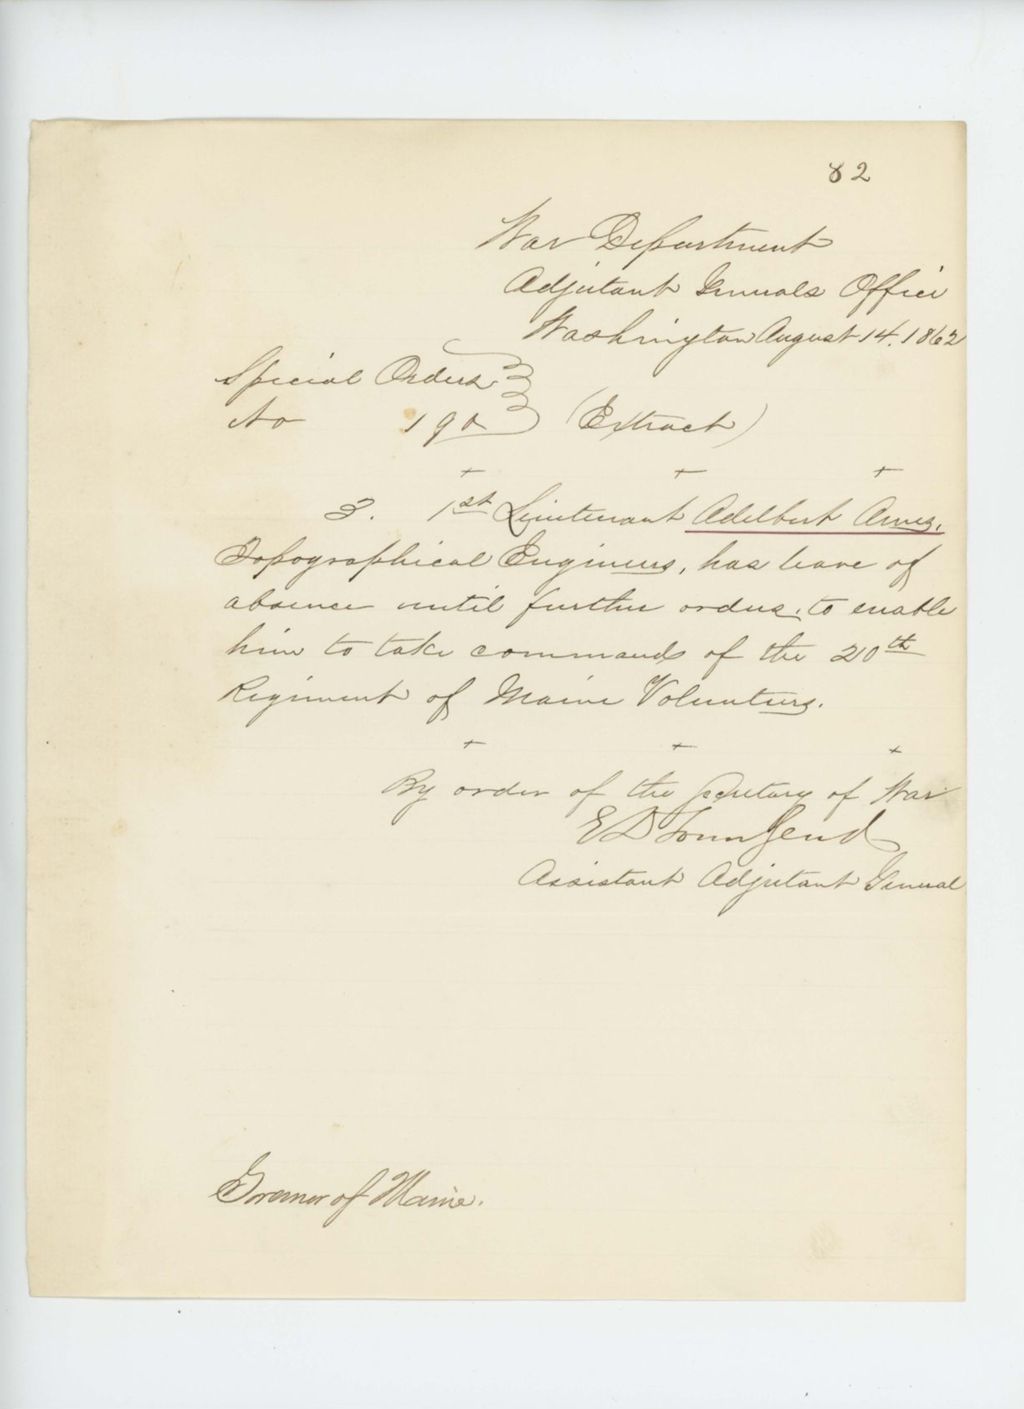 82
War Department
Adjutant Generals Office
Washington August 14. 1862
Special Orders
No 190 (Extract)
+ + +
3. 1st Lieutenant Adelbert Ames,
Topographical Engineers, has leave of
absence until further orders, to enable
him to take command of the 20th
Regiment of Maine Volunteers.
+ + +
By order of the Secretary of War
E D Townsend
Assistant Adjutant General
Governor of Maine.